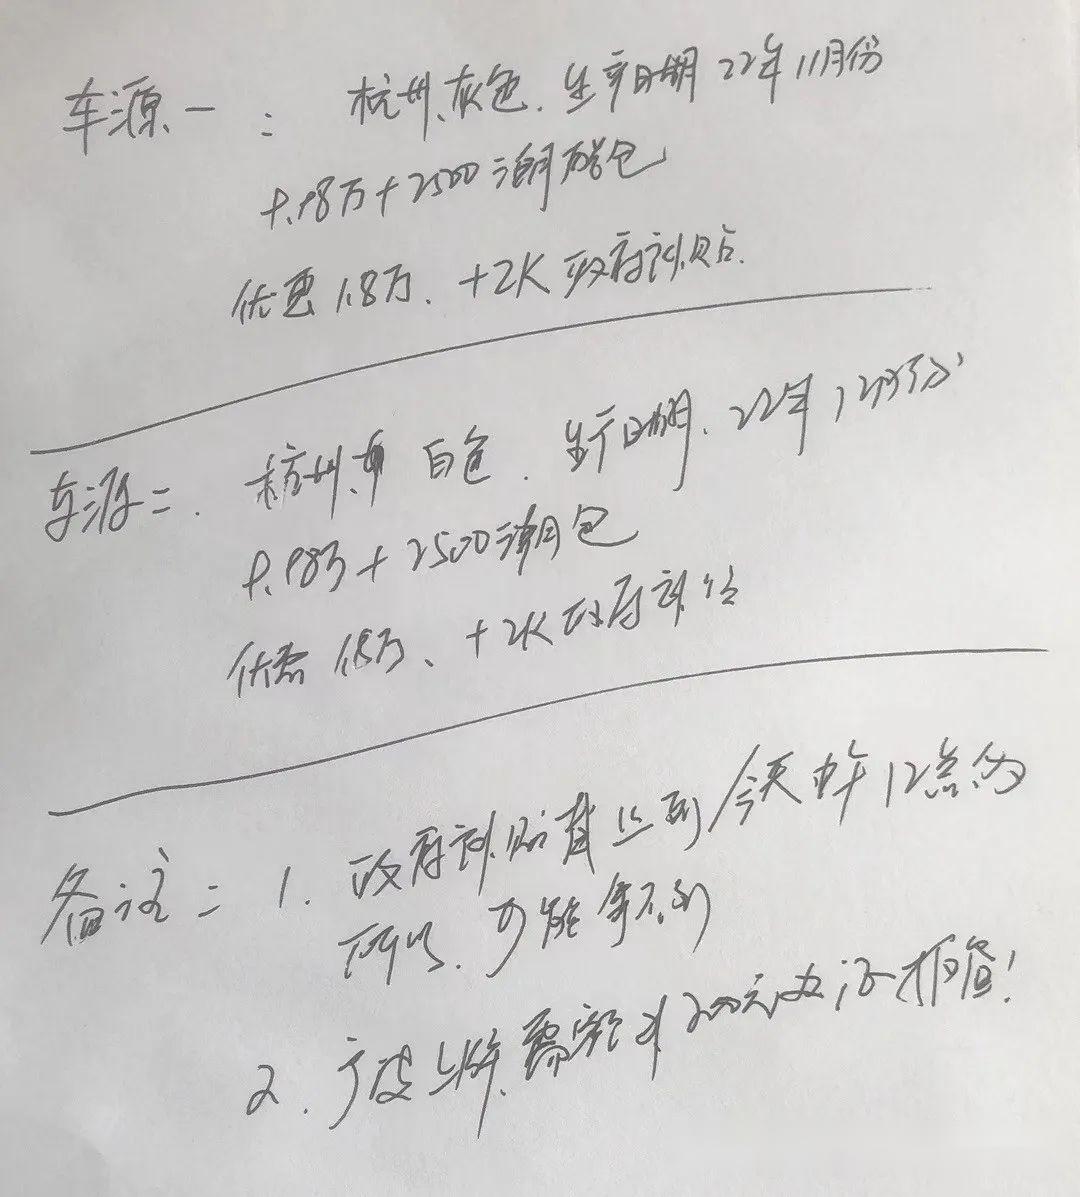 车源一：杭州.灰色.生产日期 22年11月份
.98万+2500 包
优惠1.8万、+2K政府补贴.
车源二.杭州. 白色.生产日期、22年12月份
.98万+2500 包
优惠1.8万、+2K政府补贴
备注：1.政府补贴截止到今天中午12点的
所以、可能拿不到
2.宁波上牌、需 200元 抵借！